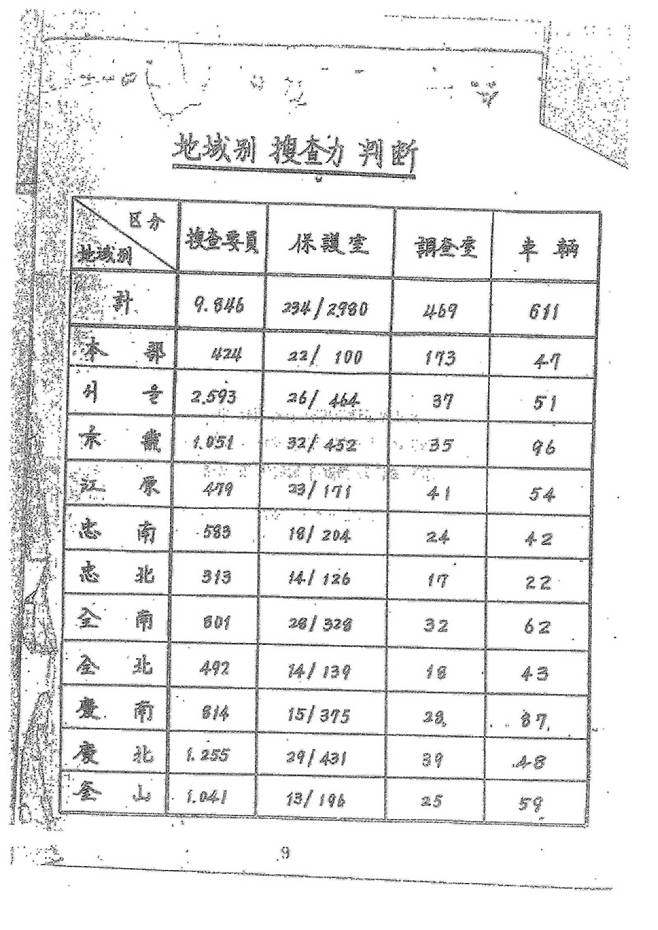 地域別 搜査力 判断
区分 地域別 搜査要員 保護室 調査室 車輛
計 9.846 234/2980 469 611
本部 424 22/100 173 47
서울 2.593 26/464 37 51
京畿 1.051 32/452 35 96
江原 479 23/171 41 54
忠南 583 18/204 24 42
忠北 313 14/126 17 22
全南 801 28/328 32 62
全北 492 14/139 18 43
慶南 814 15/375 28 87
慶北 1.255 29/431 39 48
釜山 1.041 13/196 25 59
9